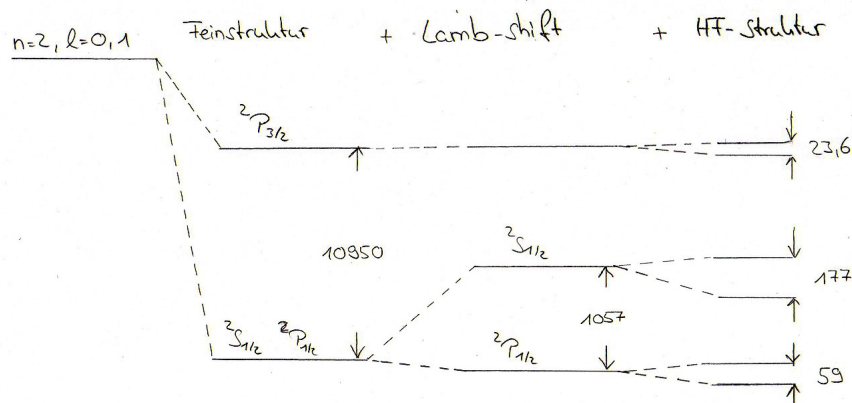 n=2, l=0,1 Feinstruktur + Lamb-shift + HF-Struktur
²P₃/₂
23,6
²S₁/₂
10950
177
1057
²S₁/₂ ²P₁/₂
²P₁/₂
59